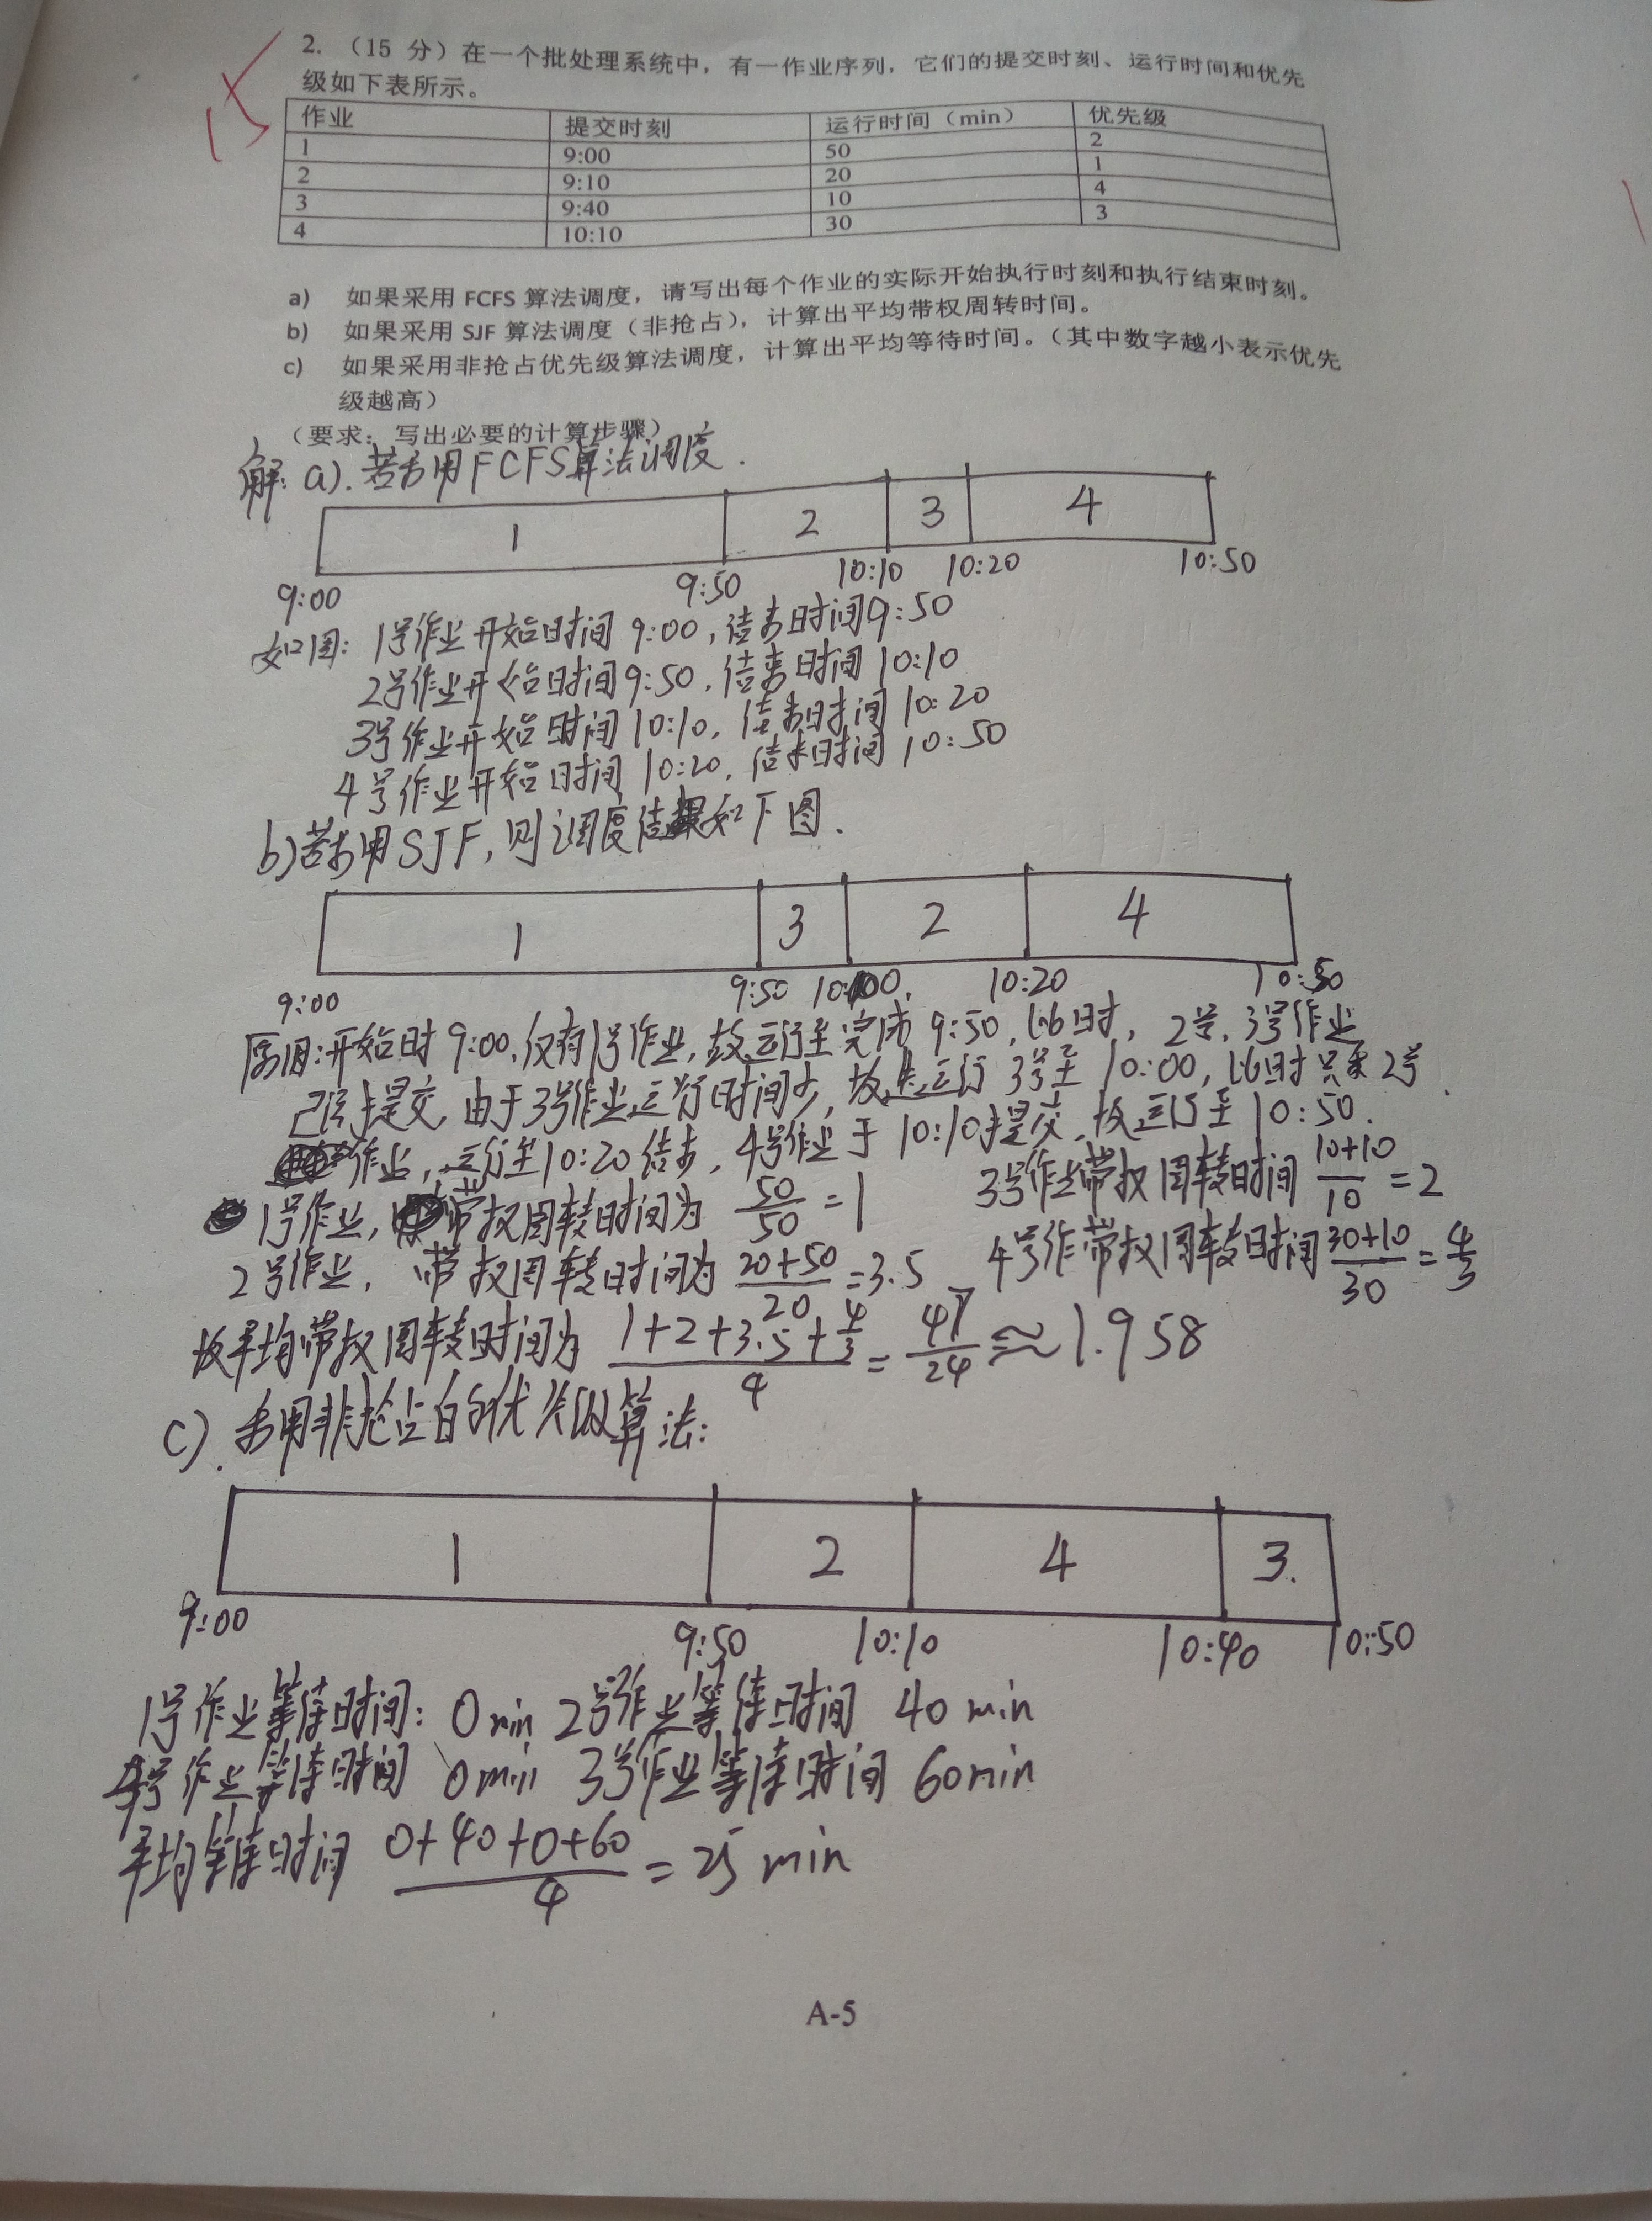 15
2. （15 分）在一个批处理系统中，有一作业序列，它们的提交时刻、运行时间和优先
级如下表所示。
作业 提交时刻 运行时间（min） 优先级
1 9:00 50 2
2 9:10 20 1
3 9:40 10 4
4 10:10 30 3
a) 如果采用 FCFS 算法调度，请写出每个作业的实际开始执行时刻和执行结束时刻。
b) 如果采用 SJF 算法调度（非抢占），计算出平均带权周转时间。
c) 如果采用非抢占优先级算法调度，计算出平均等待时间。（其中数字越小表示优先
级越高）
（要求：写出必要的计算步骤）
解: a). 若采用FCFS算法调度.
1 2 3 4
9:00 9:50 10:10 10:20 10:50
如图: 1号作业开始时间 9:00, 结束时间9:50
2号作业开始时间9:50, 结束时间 10:10
3号作业开始时间 10:10, 结束时间 10:20
4号作业开始时间 10:20, 结束时间 10:50
b)若采用SJF, 则调度结果如下图.
1 3 2 4
9:00 9:50 10:00 10:20 10:50
原因:开始时 9:00, 仅有1号作业, 故运行至完成 9:50, 此时, 2号, 3号作业
已经提交, 由于3号作业运行时间少, 故先运行 3号至 10:00, 此时只有2号
作业, 运行至10:20结束, 4号作业于 10:10提交, 故运行至 10:50.
1号作业, 带权周转时间为 50/50 = 1 3号作业带权周转时间 10+10/10 = 2
2号作业, 带权周转时间为 20+50/20 = 3.5 4号作带权周转时间 30+10/30 = 4/3
故平均带权周转时间为 1+2+3.5+4/3 / 4 = 47/24 ≈ 1.958
c). 采用非抢占的优先级算法:
1 2 4 3.
9:00 9:50 10:10 10:40 10:50
1号作业等待时间: 0 min 2号作业等待时间 40 min
4号作业等待时间 0 min 3号作业等待时间 60min
平均等待时间 0+40+0+60/4 = 25 min
A-5